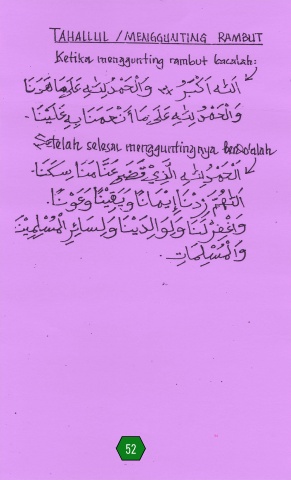 TAHALLUL / MENGGUNTING RAMBUT
Ketika menggunting rambut bacalah:
اَللّٰهُ اَكْبَرُ ٣× وَالْحَمْدُ لِلّٰهِ عَلَى مَا هَدَانَا
وَالْحَمْدُ لِلّٰهِ عَلَى مَا أَنْعَمَنَا بِهِ عَلَيْنَا.
Setelah selesai mengguntingnya berdo'alah
اَلْحَمْدُ لِلّٰهِ الَّذِيْ قَضَى عَنَّا مَنَاسِكَنَا.
اَللّٰهُمَّ زِدْنَا إِيْمَانًا وَيَقِيْنًا وَعَوْنًا.
وَاغْفِرْ لَنَا وَلِوَالِدَيْنَا وَلِسَائِرِ الْمُسْلِمِيْنَ
وَالْمُسْلِمَاتِ.
52